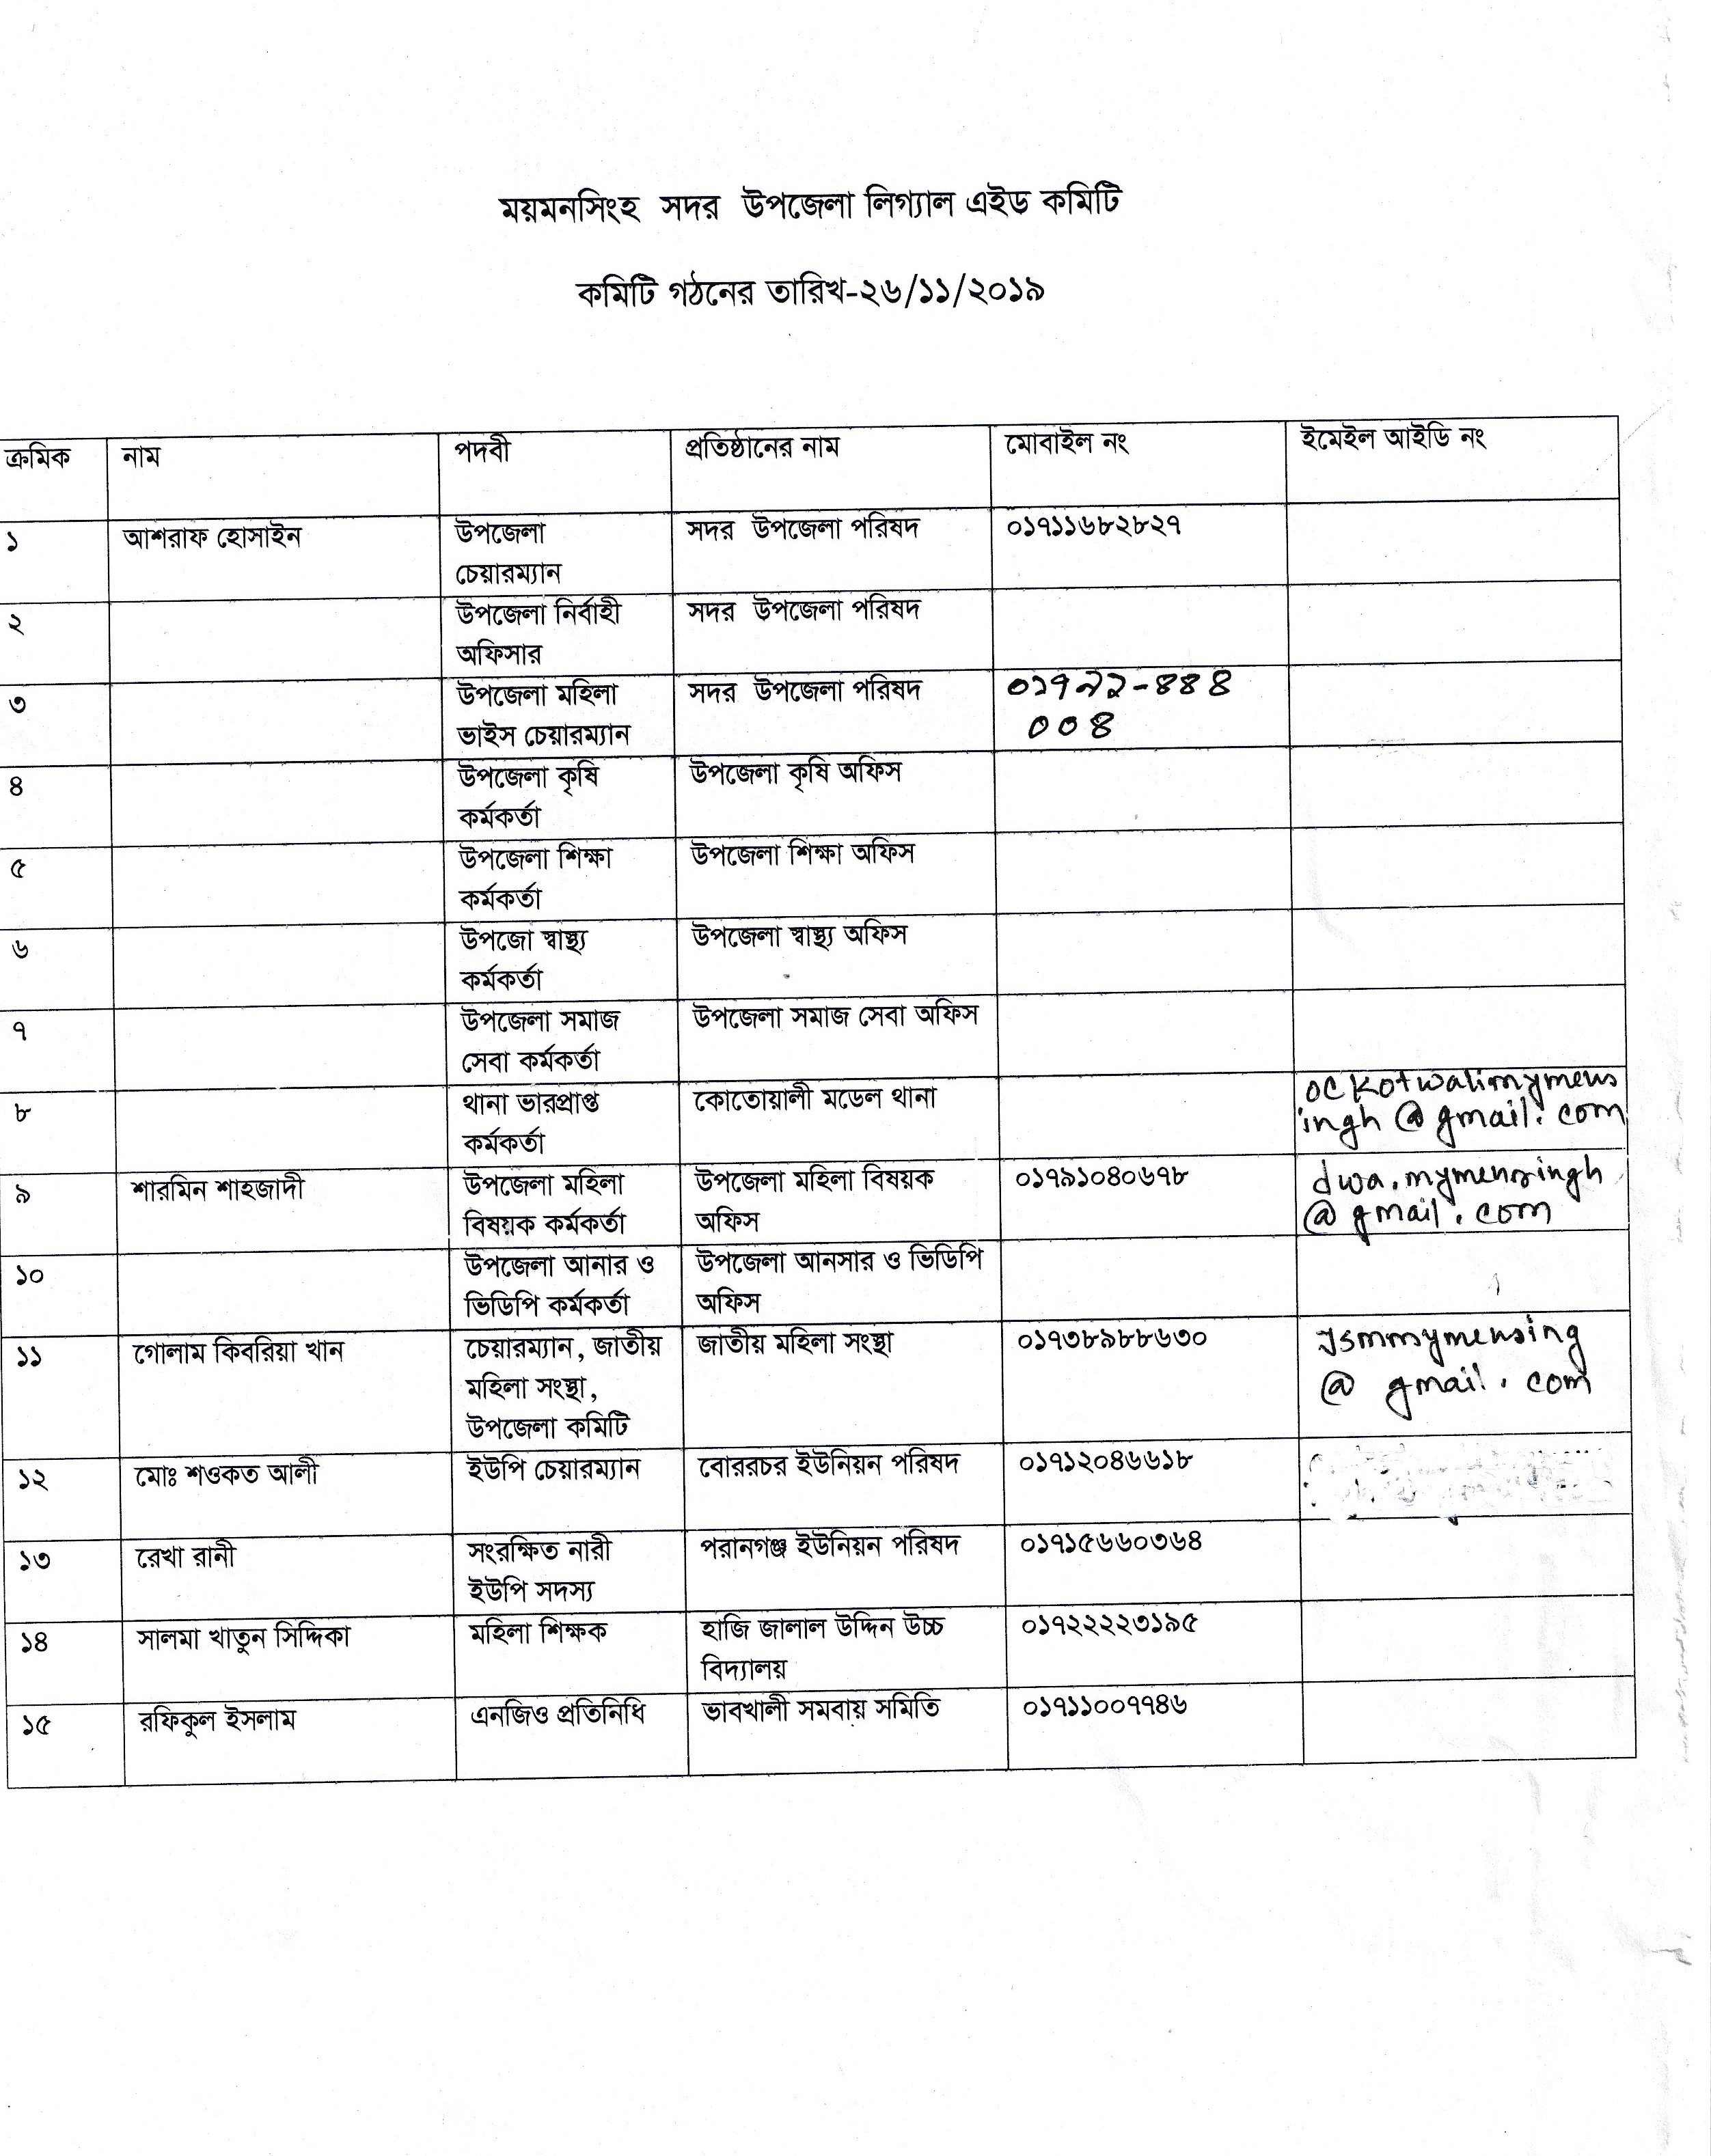 ময়মনসিংহ সদর উপজেলা লিগ্যাল এইড কমিটি
কমিটি গঠনের তারিখ-২৬/১১/২০১৯
ক্রমিক নাম পদবী প্রতিষ্ঠানের নাম মোবাইল নং ইমেইল আইডি নং
১ আশরাফ হোসাইন উপজেলা সদর উপজেলা পরিষদ ০১৭১১৬৮২৮২৭
চেয়ারম্যান
২ উপজেলা নির্বাহী সদর উপজেলা পরিষদ
অফিসার
৩ উপজেলা মহিলা সদর উপজেলা পরিষদ
ভাইস চেয়ারম্যান ০০৪
৪ উপজেলা কৃষি উপজেলা কৃষি অফিস
কর্মকর্তা
৫ উপজেলা শিক্ষা উপজেলা শিক্ষা অফিস
কর্মকর্তা
৬ উপজো স্বাস্থ্য উপজেলা স্বাস্থ্য অফিস
কর্মকর্তা
৭ উপজেলা সমাজ উপজেলা সমাজ সেবা অফিস
সেবা কর্মকর্তা
৮ থানা ভারপ্রাপ্ত কোতোয়ালী মডেল থানা ockotwalimymens
কর্মকর্তা ingh@gmail.com
৯ শারমিন শাহজাদী উপজেলা মহিলা উপজেলা মহিলা বিষয়ক ০১৭৯১০৪০৬৭৮ dwa.mymensingh
বিষয়ক কর্মকর্তা অফিস @gmail.com
১০ উপজেলা আনার ও উপজেলা আনসার ও ভিডিপি
ভিডিপি কর্মকর্তা অফিস
১১ গোলাম কিবরিয়া খান চেয়ারম্যান, জাতীয় জাতীয় মহিলা সংস্থা ০১৭৩৮৯৮৮৬৩০
মহিলা সংস্থা, @ gmail.com
উপজেলা কমিটি
১২ মোঃ শওকত আলী ইউপি চেয়ারম্যান বোররচর ইউনিয়ন পরিষদ ০১৭১২০৪৬৬১৮
১৩ রেখা রানী সংরক্ষিত নারী পরানগঞ্জ ইউনিয়ন পরিষদ ০১৭১৫৬৬০৩৬৪
ইউপি সদস্য
১৪ সালমা খাতুন সিদ্দিকা মহিলা শিক্ষক হাজি জালাল উদ্দিন উচ্চ ০১৭২২২২৩১৯৫
বিদ্যালয়
১৫ রফিকুল ইসলাম এনজিও প্রতিনিধি ভাবখালী সমবায় সমিতি ০১৭১১০০৭৭৪৬